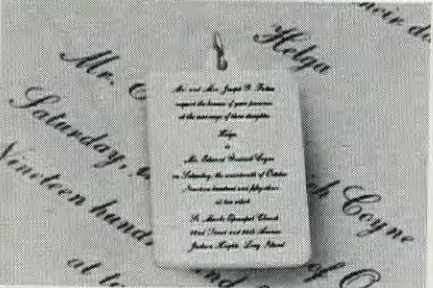 their da
Helga
Mr.
Saturday,
Nineteen hund
at
Coyne
of O
Mr. and Mrs. Joseph
request the honour of your presence
at the marriage of their daughter
Helga
to
Mr. Edward Coyne
on Saturday, the seventeenth of October
Nineteen hundred and fifty-three
at ten o'clock
St. Mark's Episcopal Church
82nd Street and 34th Avenue
Jackson Heights, Long Island